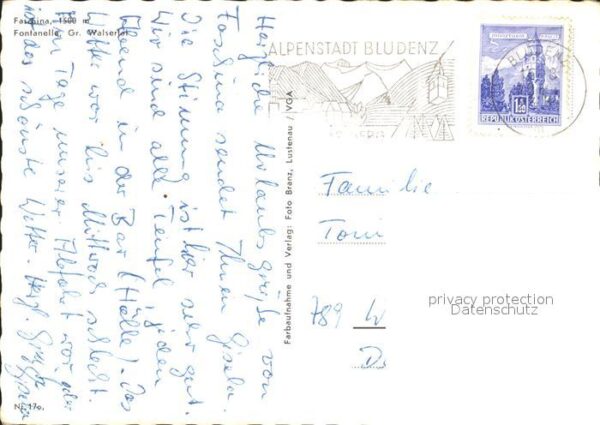 Faschina, 1500 m
Fontanella, Gr. Walsertal
Herzliche Urlaubsgrüße von
Faschina sendet Ihnen Gisela.
Die Stimmung ist hier sehr gut.
Wir sind alle Teufel, jeden
Abend in der Bar (Hölle). Das
Wetter war bis Mittwoch schlecht.
Am Tage unserer Abfahrt war aber
das schönste Wetter. Herzl. Grüße
Gisela
Nr. 170.
Farbaufnahme und Verlag: Foto Branz, Lustenau / VGA
ALPENSTADT BLUDENZ
BLUDENZ
1.50
REPUBLIK ÖSTERREICH
Familie
Toni
789 W
D
privacy protection
Datenschutz